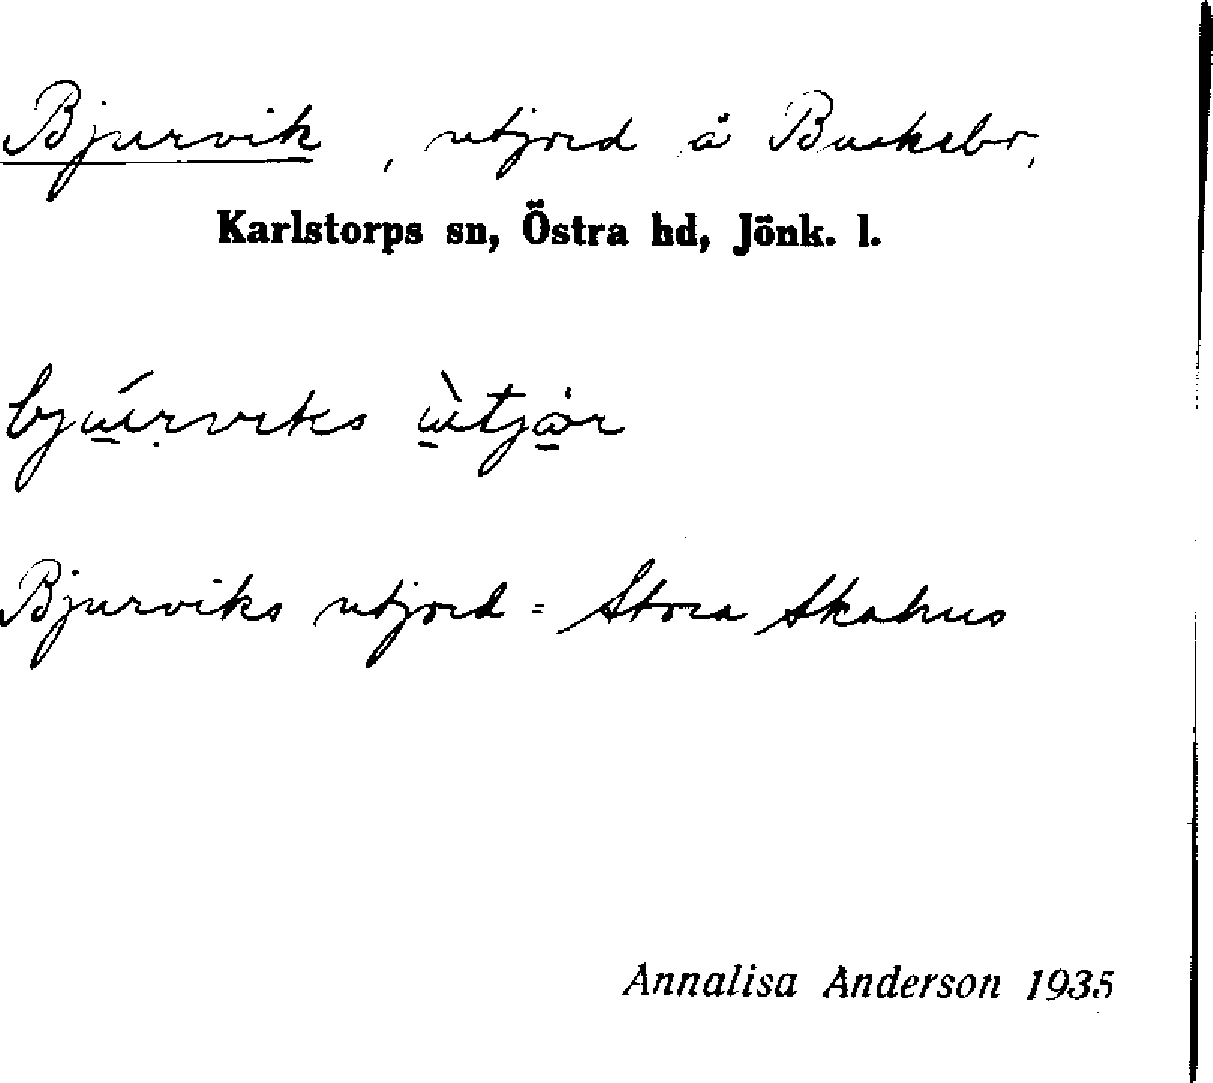 Bjurvik, utjord å Buskebr,
Karlstorps sn, Östra hd, Jönk. l.
bjúrviks ùtjor
Bjurviks utjord = Stora Skahus
Annalisa Anderson 1935